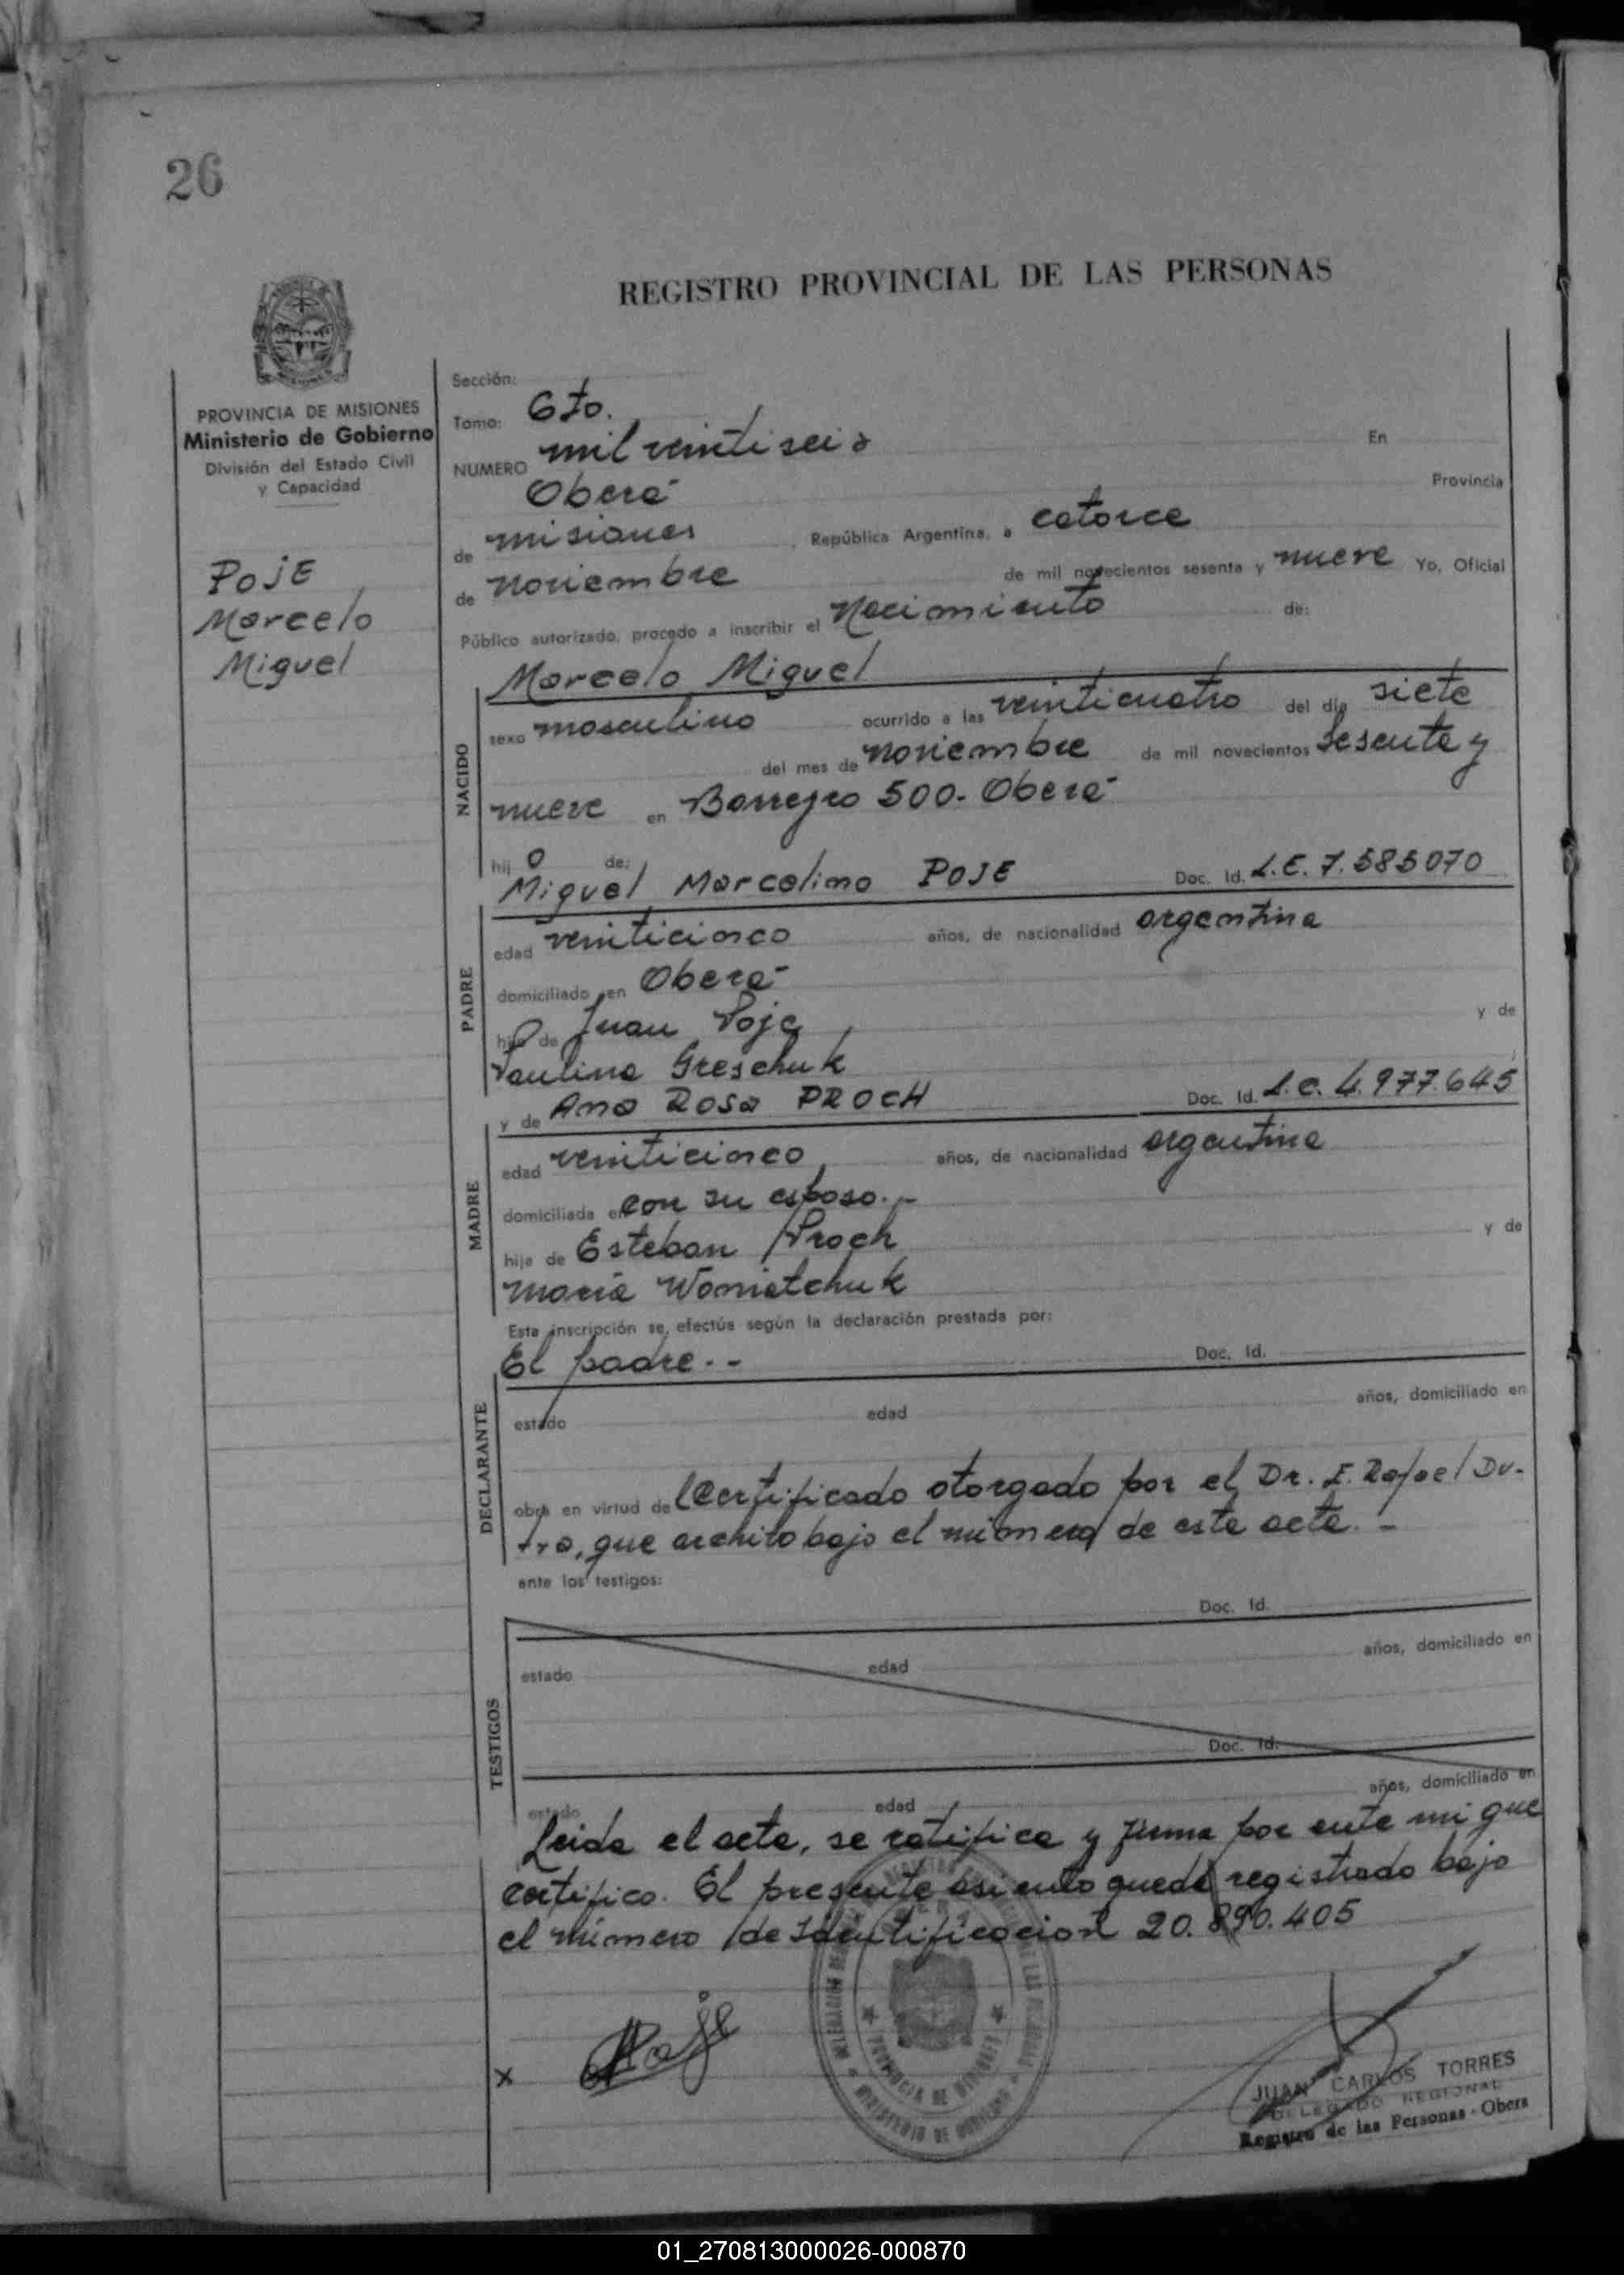 26
REGISTRO PROVINCIAL DE LAS PERSONAS
PROVINCIA DE MISIONES
Ministerio de Gobierno
División del Estado Civil
y Capacidad
POJE
Marcelo
Miguel
Sección:
Tomo: 6to.
NUMERO mil veintiseis En
Oberá Provincia
de misiones, República Argentina, a catorce
de noviembre de mil novecientos sesenta y nueve Yo, Oficial
Público autorizado, procedo a inscribir el Nacimiento de:
Marcelo Miguel
NACIDO
sexo masculino ocurrido a las veinticuatro del día siete
del mes de noviembre de mil novecientos sesenta y
nueve en 500. Oberá
hij o de:
Miguel Marcelino POJE Doc. Id. L.E. 7.585070
PADRE
edad veinticinco años, de nacionalidad argentina
domiciliado en Oberá
hijo de Juan Poje y de
Paulina Greschuk
y de Ana Rosa PROCH Doc. Id. L.C. 4.977.645
MADRE
edad veinticinco años, de nacionalidad argentina
domiciliada en con su esposo.-
hija de Esteban Proch y de
María Woniatchuk
Esta inscripción se efectúa según la declaración prestada por:
El padre.- Doc. Id.
DECLARANTE
estado edad años, domiciliado en
obra en virtud de Certificado otorgado por el Dr. E. Rafael Du-
tra, que archivo bajo el número de este acta.-
ante los testigos:
Doc. Id.
TESTIGOS
estado edad años, domiciliado en
Doc. Id.
estado edad años, domiciliado en
Leida el acta, se ratifica y firma por ante mi que
certifico. El presente asiento queda registrado bajo
el número de Identificación 20.890.405
x Poje
PROVINCIA DE MISIONES
MINISTERIO DE GOBIERNO
JUAN CARLOS TORRES
DELEGADO REGIONAL
Registro de las Personas - Obera
01_270813000026-000870